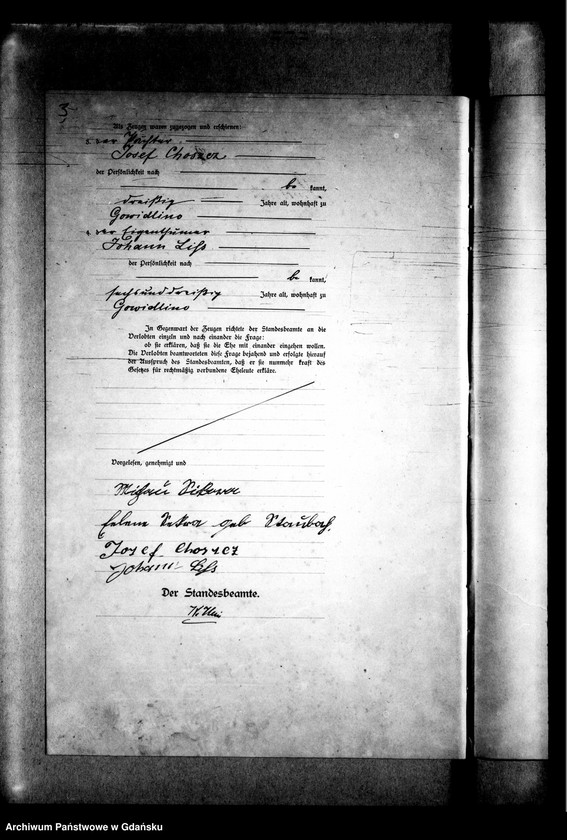 3
Als Zeugen waren zugezogen und erschienen:
3. der Pächter
Josef Choszcz
der Persönlichkeit nach
be kannt,
dreißig Jahre alt, wohnhaft zu
Gowidlino
4. der Eigenthümer
Johann Liss
der Persönlichkeit nach
be kannt,
sechsunddreißig Jahre alt, wohnhaft zu
Gowidlino
In Gegenwart der Zeugen richtete der Standesbeamte an die
Verlobten einzeln und nach einander die Frage:
ob sie erklären, daß sie die Ehe mit einander eingehen wollen.
Die Verlobten beantworteten diese Frage bejahend und erfolgte hierauf
der Ausspruch des Standesbeamten, daß er sie nunmehr kraft des
Gesetzes für rechtmäßig verbundene Eheleute erkläre.
Vorgelesen, genehmigt und
Helene geb Staubach.
Josef Choszcz
Johann Liss
Der Standesbeamte.
Archiwum Państwowe w Gdańsku